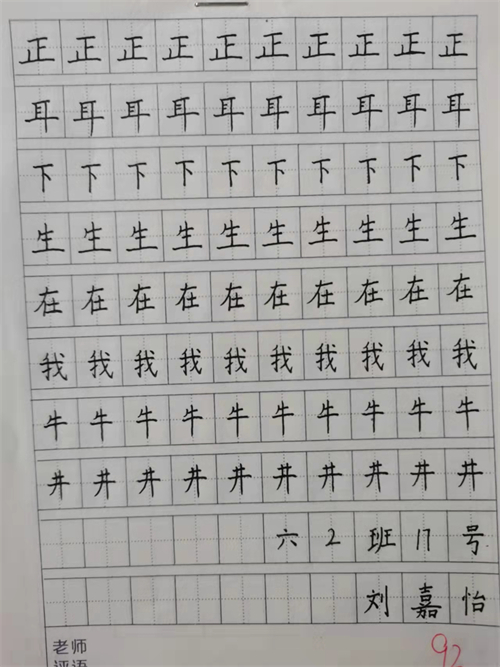 正正正正正正正正正正
耳耳耳耳耳耳耳耳耳耳
下下下下下下下下下下
生生生生生生生生生生
在在在在在在在在在在
我我我我我我我我我我
牛牛牛牛牛牛牛牛牛牛
井井井井井井井井井井
六2班17号
刘嘉怡
老师
评语
92